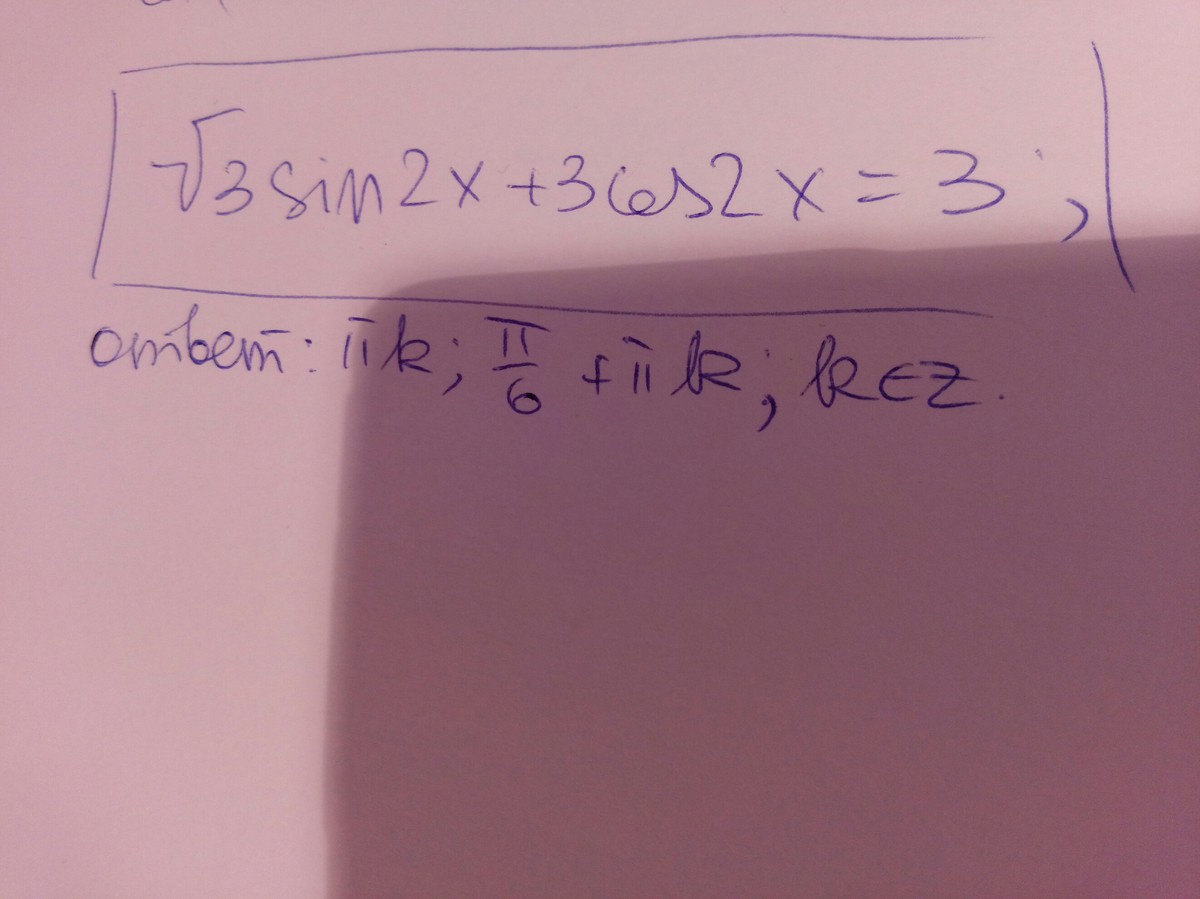 √3 sin2x + 3cos2x = 3;
ответ: πk; π/6 + πk; k∈Z.